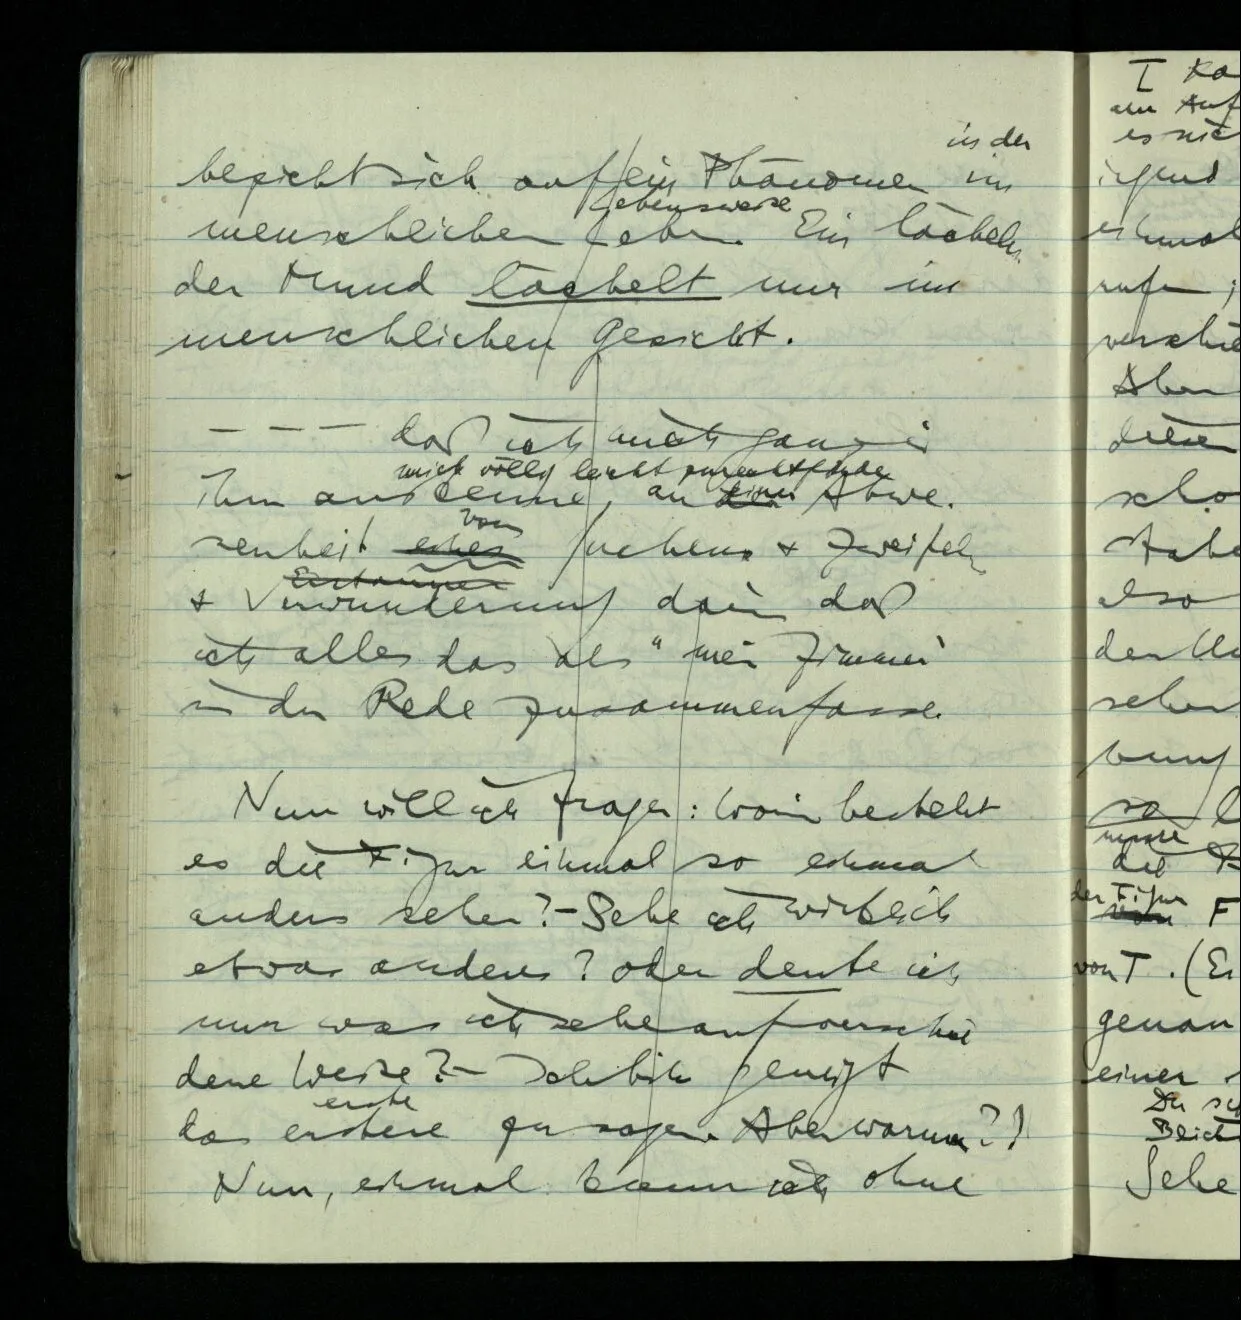 in der
bezieht sich auf ein Phänomen im
Lebensweise
menschlichen Leben. Ein lächeln
der Mund lächelt nur im
menschlichen Gesicht.
— — — daß ich mich ganz in
mich völlig leicht zurechtfinde
ihm auskenne, an einer Abwe-
von
senheit eines Suchens & Zweifelns
Erstaunen
& Verwunderung darin daß
ich alles das als "mein Zimmer"
in der Rede zusammenfasse.
Nun will ich fragen: Worin besteht
es die Figur einmal so einmal
anders sehen? – Sehe ich wirklich
etwas anderes? oder deute ich
nur was ich sehe auf verschie
dene Weise? – Ich bin geneigt
erste
das erstere zu sagen. Aber warum?!
Nun, einmal kann ich ohne
I
am
es
irgend
rufen;
Aber
diesen
also
sehen
so
die
der Figur
von F
von T. (
genau
einer
Sehe